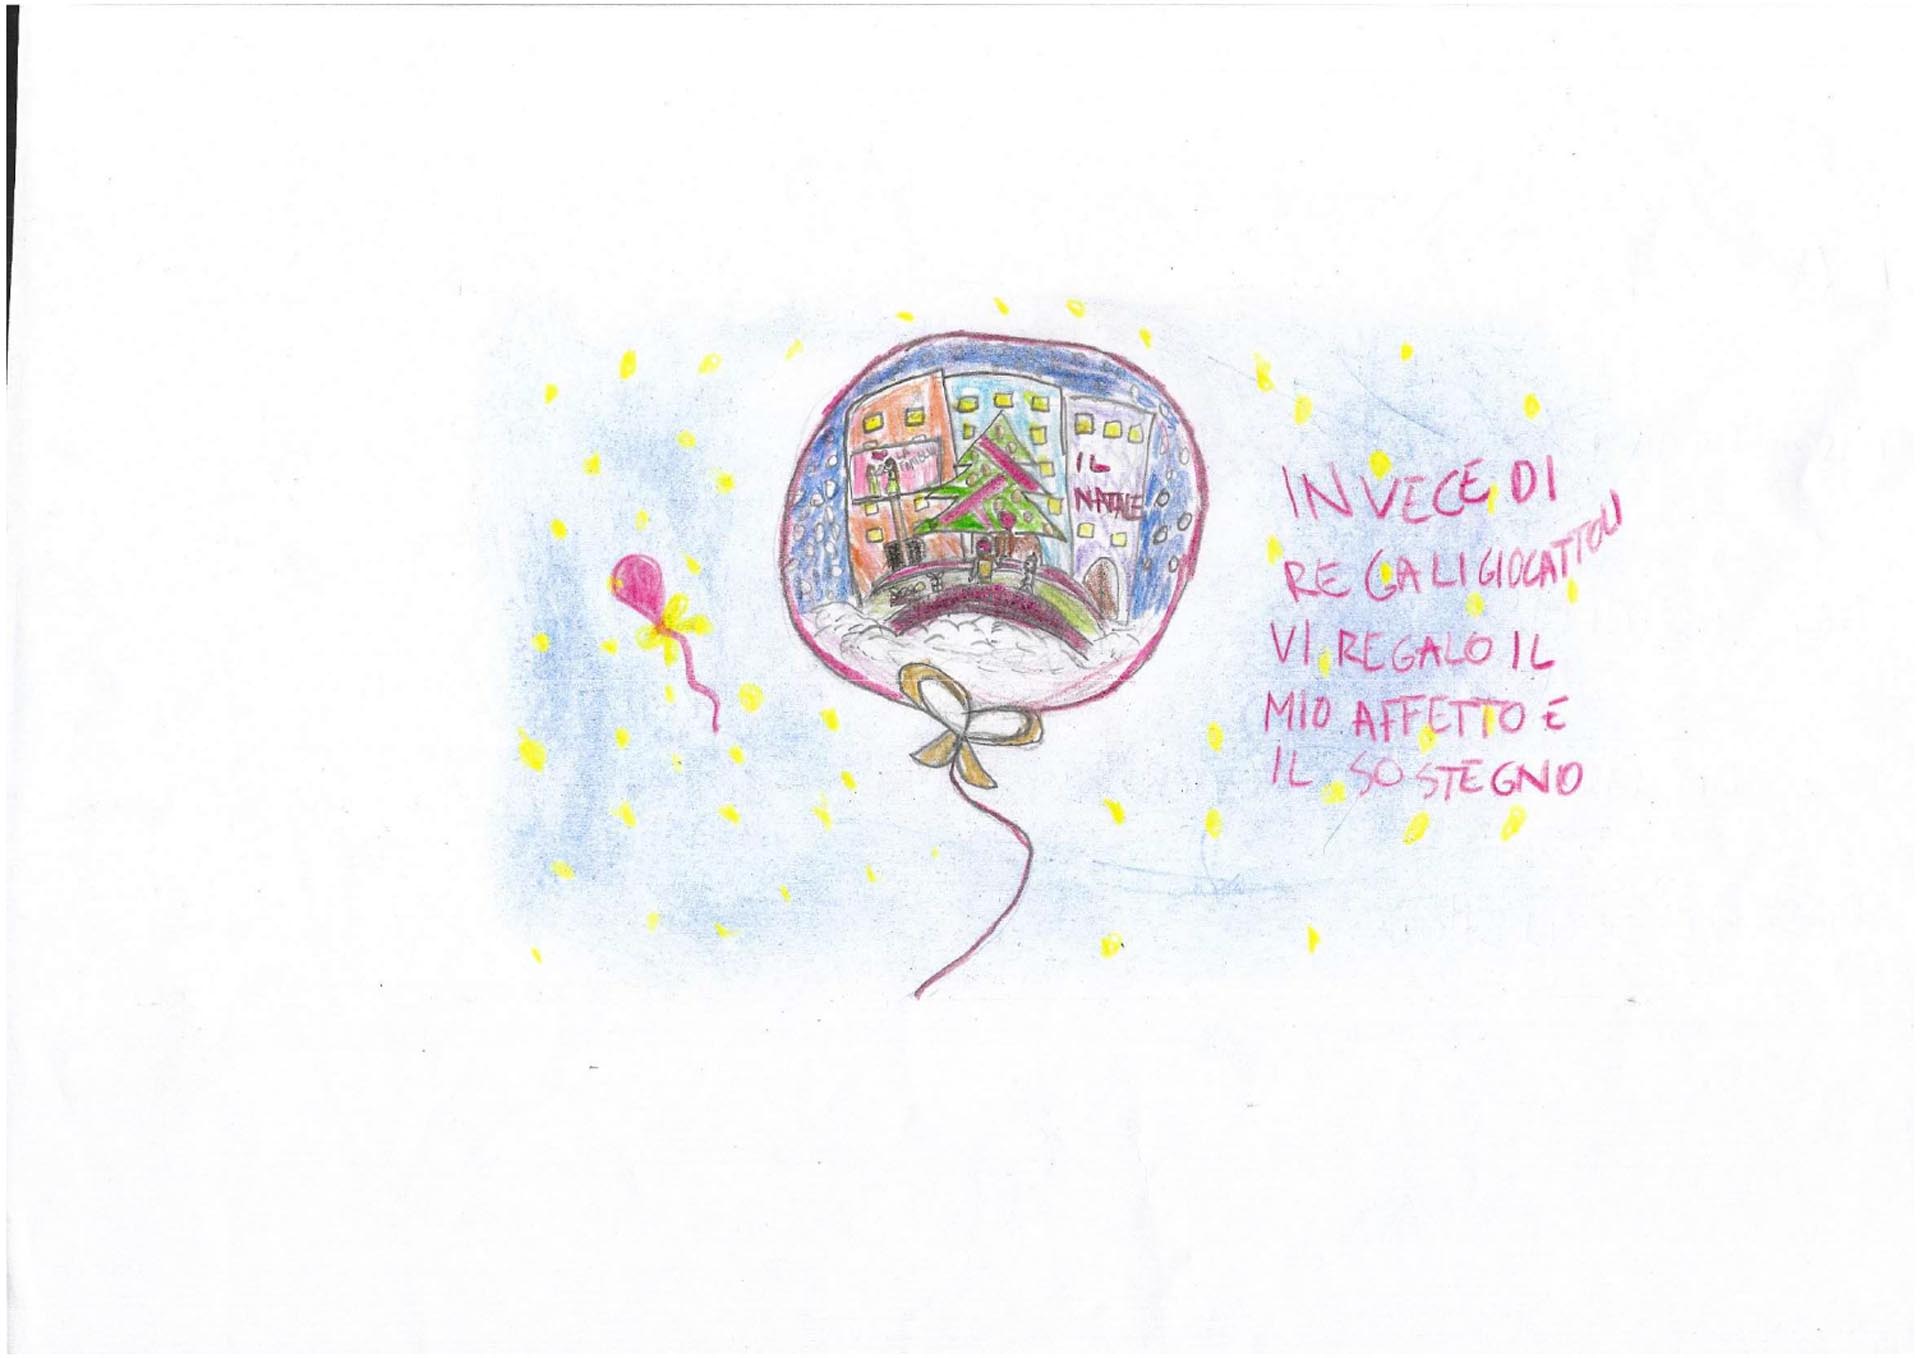 LA
FAMIGLIA
IL
NATALE
INVECE DI
REGALI GIOCATTOLI
VI REGALO IL
MIO AFFETTO E
IL SOSTEGNO